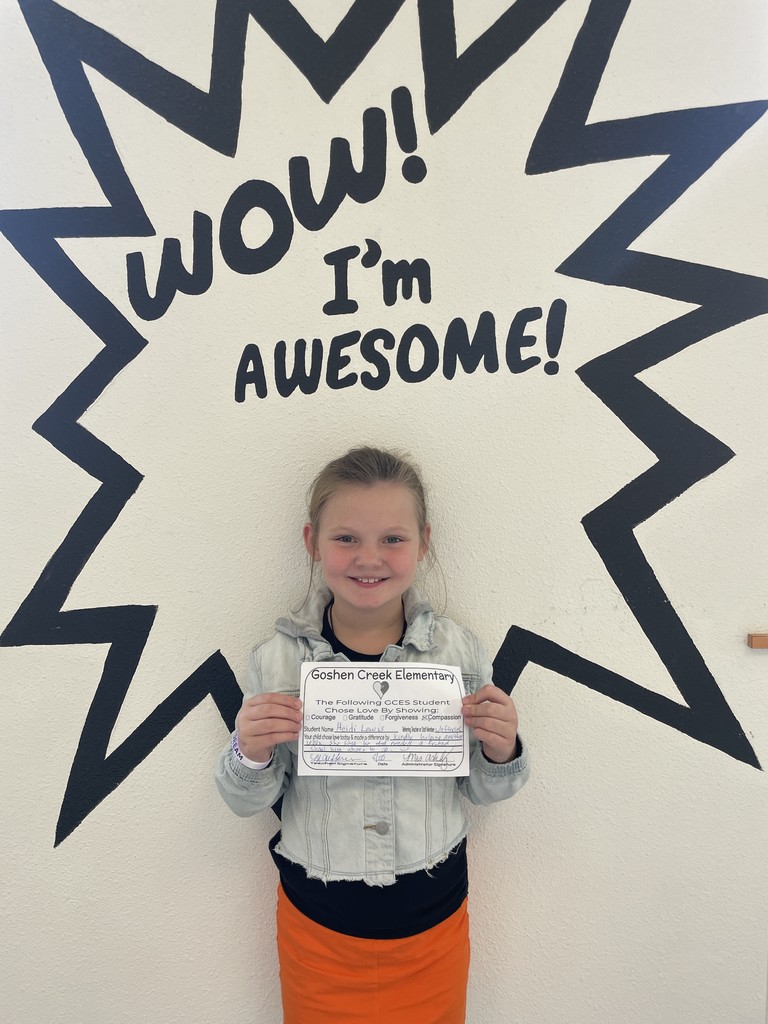 WOW!
I'm
AWESOME!
Goshen Creek Elementary
The Following GCES Student
Chose Love By Showing:
Courage Gratitude Forgiveness Compassion
Student Name Heidi Lewis
Your child chose love today & made a difference by kindly helping another
Teacher Signature Date Administrator Signature
TEAM